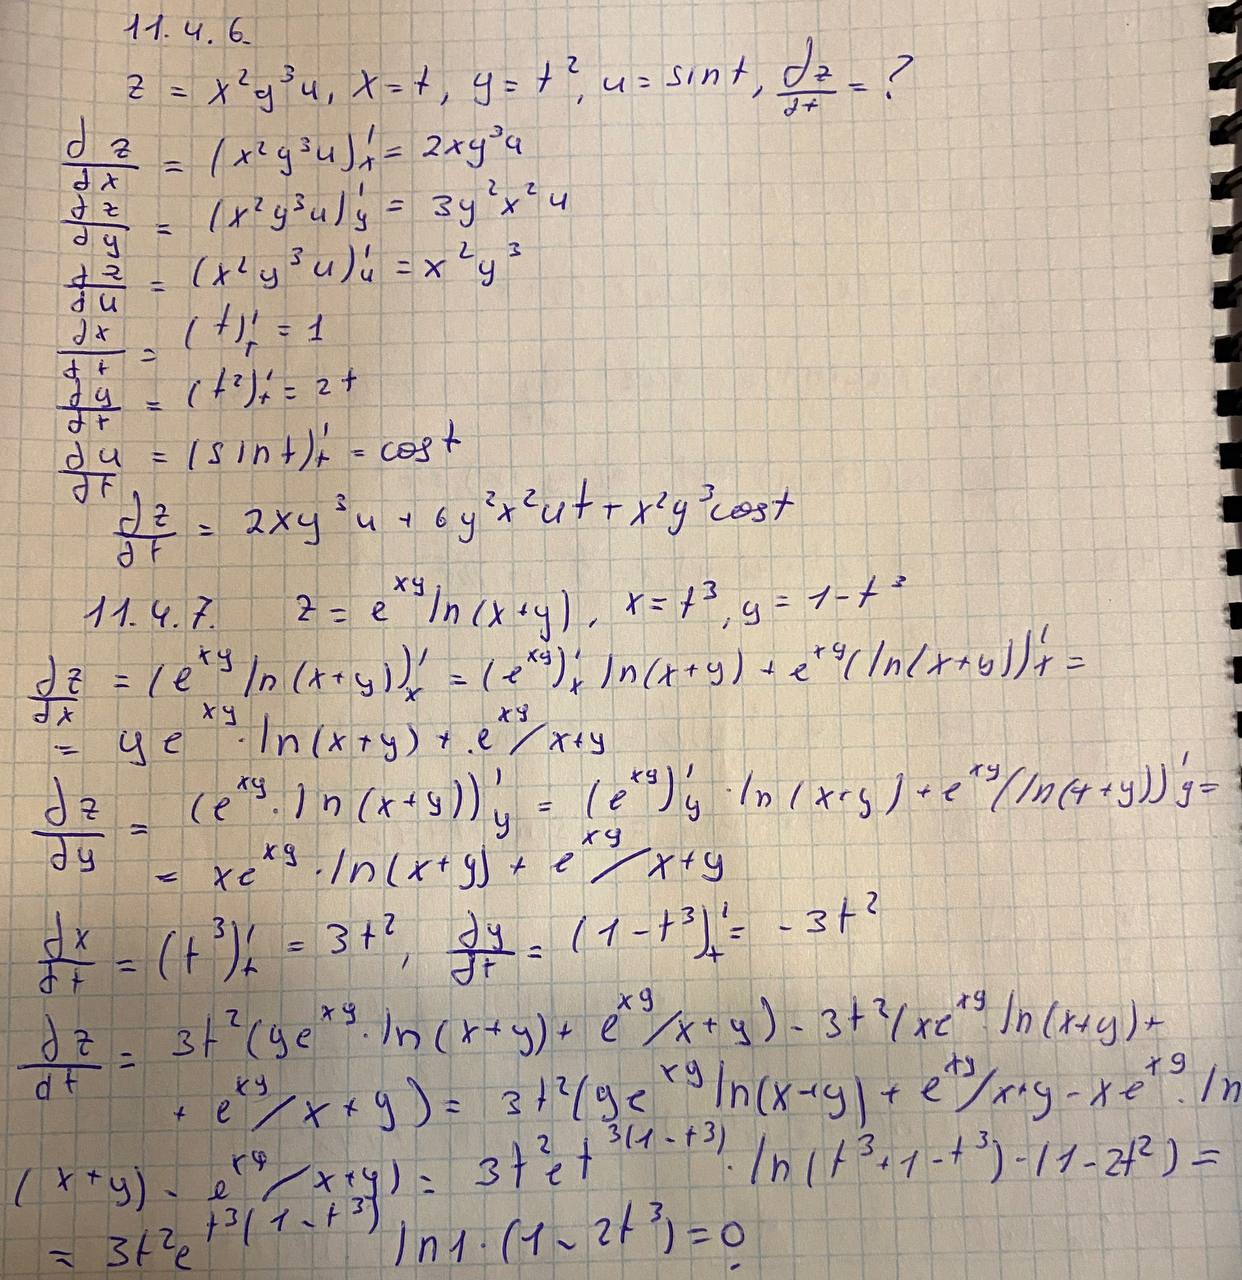 11.4.6.
z = x²y³u, x=t, y=t², u=sint, ∂z/∂t = ?
∂z/∂x = (x²y³u)'ₓ = 2xy³u
∂z/∂y = (x²y³u)'y = 3y²x²u
∂z/∂u = (x²y³u)'u = x²y³
∂x/∂t = (t)'t = 1
∂y/∂t = (t²)'t = 2t
∂u/∂t = (sint)'t = cost
∂z/∂t = 2xy³u + 6y²x²ut + x²y³cost
11.4.7. z = e^xy ln(x+y), x=t³, y=1-t³
∂z/∂x = (e^xy ln(x+y))'ₓ = (e^xy)'ₓ ln(x+y) + e^xy(ln(x+y))'ₓ =
= ye^xy · ln(x+y) + e^xy/x+y
∂z/∂y = (e^xy · ln(x+y))'y = (e^xy)'y · ln(x+y) + e^xy(ln(x+y))'y =
= xe^xy · ln(x+y) + e^xy/x+y
∂x/∂t = (t³)'t = 3t², ∂y/∂t = (1-t³)'t = -3t²
∂z/∂t = 3t²(ye^xy · ln(x+y) + e^xy/x+y) - 3t²(xe^xy · ln(x+y) +
+ e^xy/x+y) = 3t²(ye^xy ln(x+y) + e^xy/x+y - xe^xy · ln
(x+y) - e^xy/x+y) = 3t²e^t^3(1-t³) · ln(t³+1-t³)·(1-2t²) =
= 3t²e^t³(1-t³) ln1·(1-2t³) = 0.